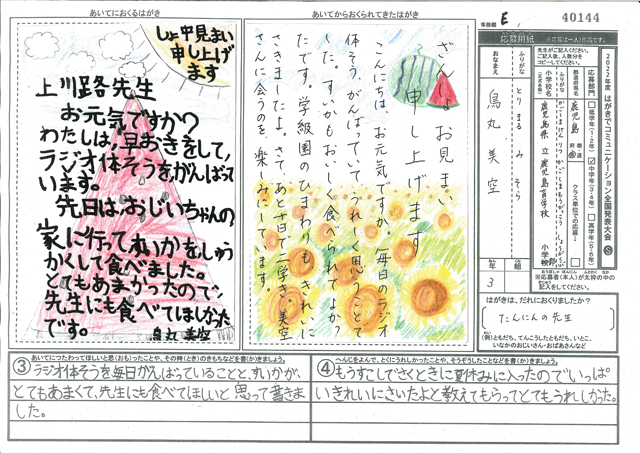 あいてにおくるはがき
しょ中見まい
申し上げ
ます
上川路先生
お元気ですか?
わたしは、早おきをして、
ラジオ体そうをがんばって
います。
先日は、おじいちゃんの
家に行ってすいかをしゅう
かくして食べました。
とてもあまかったので、
先生にも食べてほしかった
です。
鳥丸美空
あいてからおくられてきたはがき
ざんしょお見まい
申し上げます
こんにちは。お元気ですか。毎日のラジオ
体そう、がんばっていて、うれしく思うことで
した。すいかもおいしく食べられてよか
ったです。学級園のひまわりも、きれいに
さきましたよ。さて、あと十日で二学き。美空
さんに会うのを、楽しみにしています。
事務欄
E
40144
応募用紙
※応募は一人1作品です。
2022年度 はがきでコミュニケーション全国発表大会
先生がご記入ください。
ご記入後、人数分を
コピーしてください。
応募部門
低学年(1・2年)
中学年(3・4年)
高学年(5・6年)
都道府県名
鹿児島
都道府県
クラス単位での応募
ふりがな
小学校名
(正式名称)
鹿児島県立鹿児島盲学校
小学校
ふりがな
とりまる みそら
おなまえ
鳥丸 美空
年
3
組
※応募者(本人)が太枠の中の
記入をしてください。
はがきは、だれにおくりましたか?
たんにんの先生
(例)ともだち、てんこうしたともだち、いとこ、
いなかのおじいさん・おばあさんなど
③
あいてにつたわってほしいと思(おも)ったことや、その時(とき)のきもちなどを書(か)きましょう。
ラジオ体そうを毎日がんばっていることと、すいかが、
とてもあまくて、先生にも食べてほしいと思って書きま
した。
④
へんじをよんで、とくにうれしかったことや、そうぞうしたことなどを書(か)きましょう。
もうすこしでさくときに夏休みに入ったのでいっぱ
いきれいにさいたよと教えてもらってとてもうれしかった。